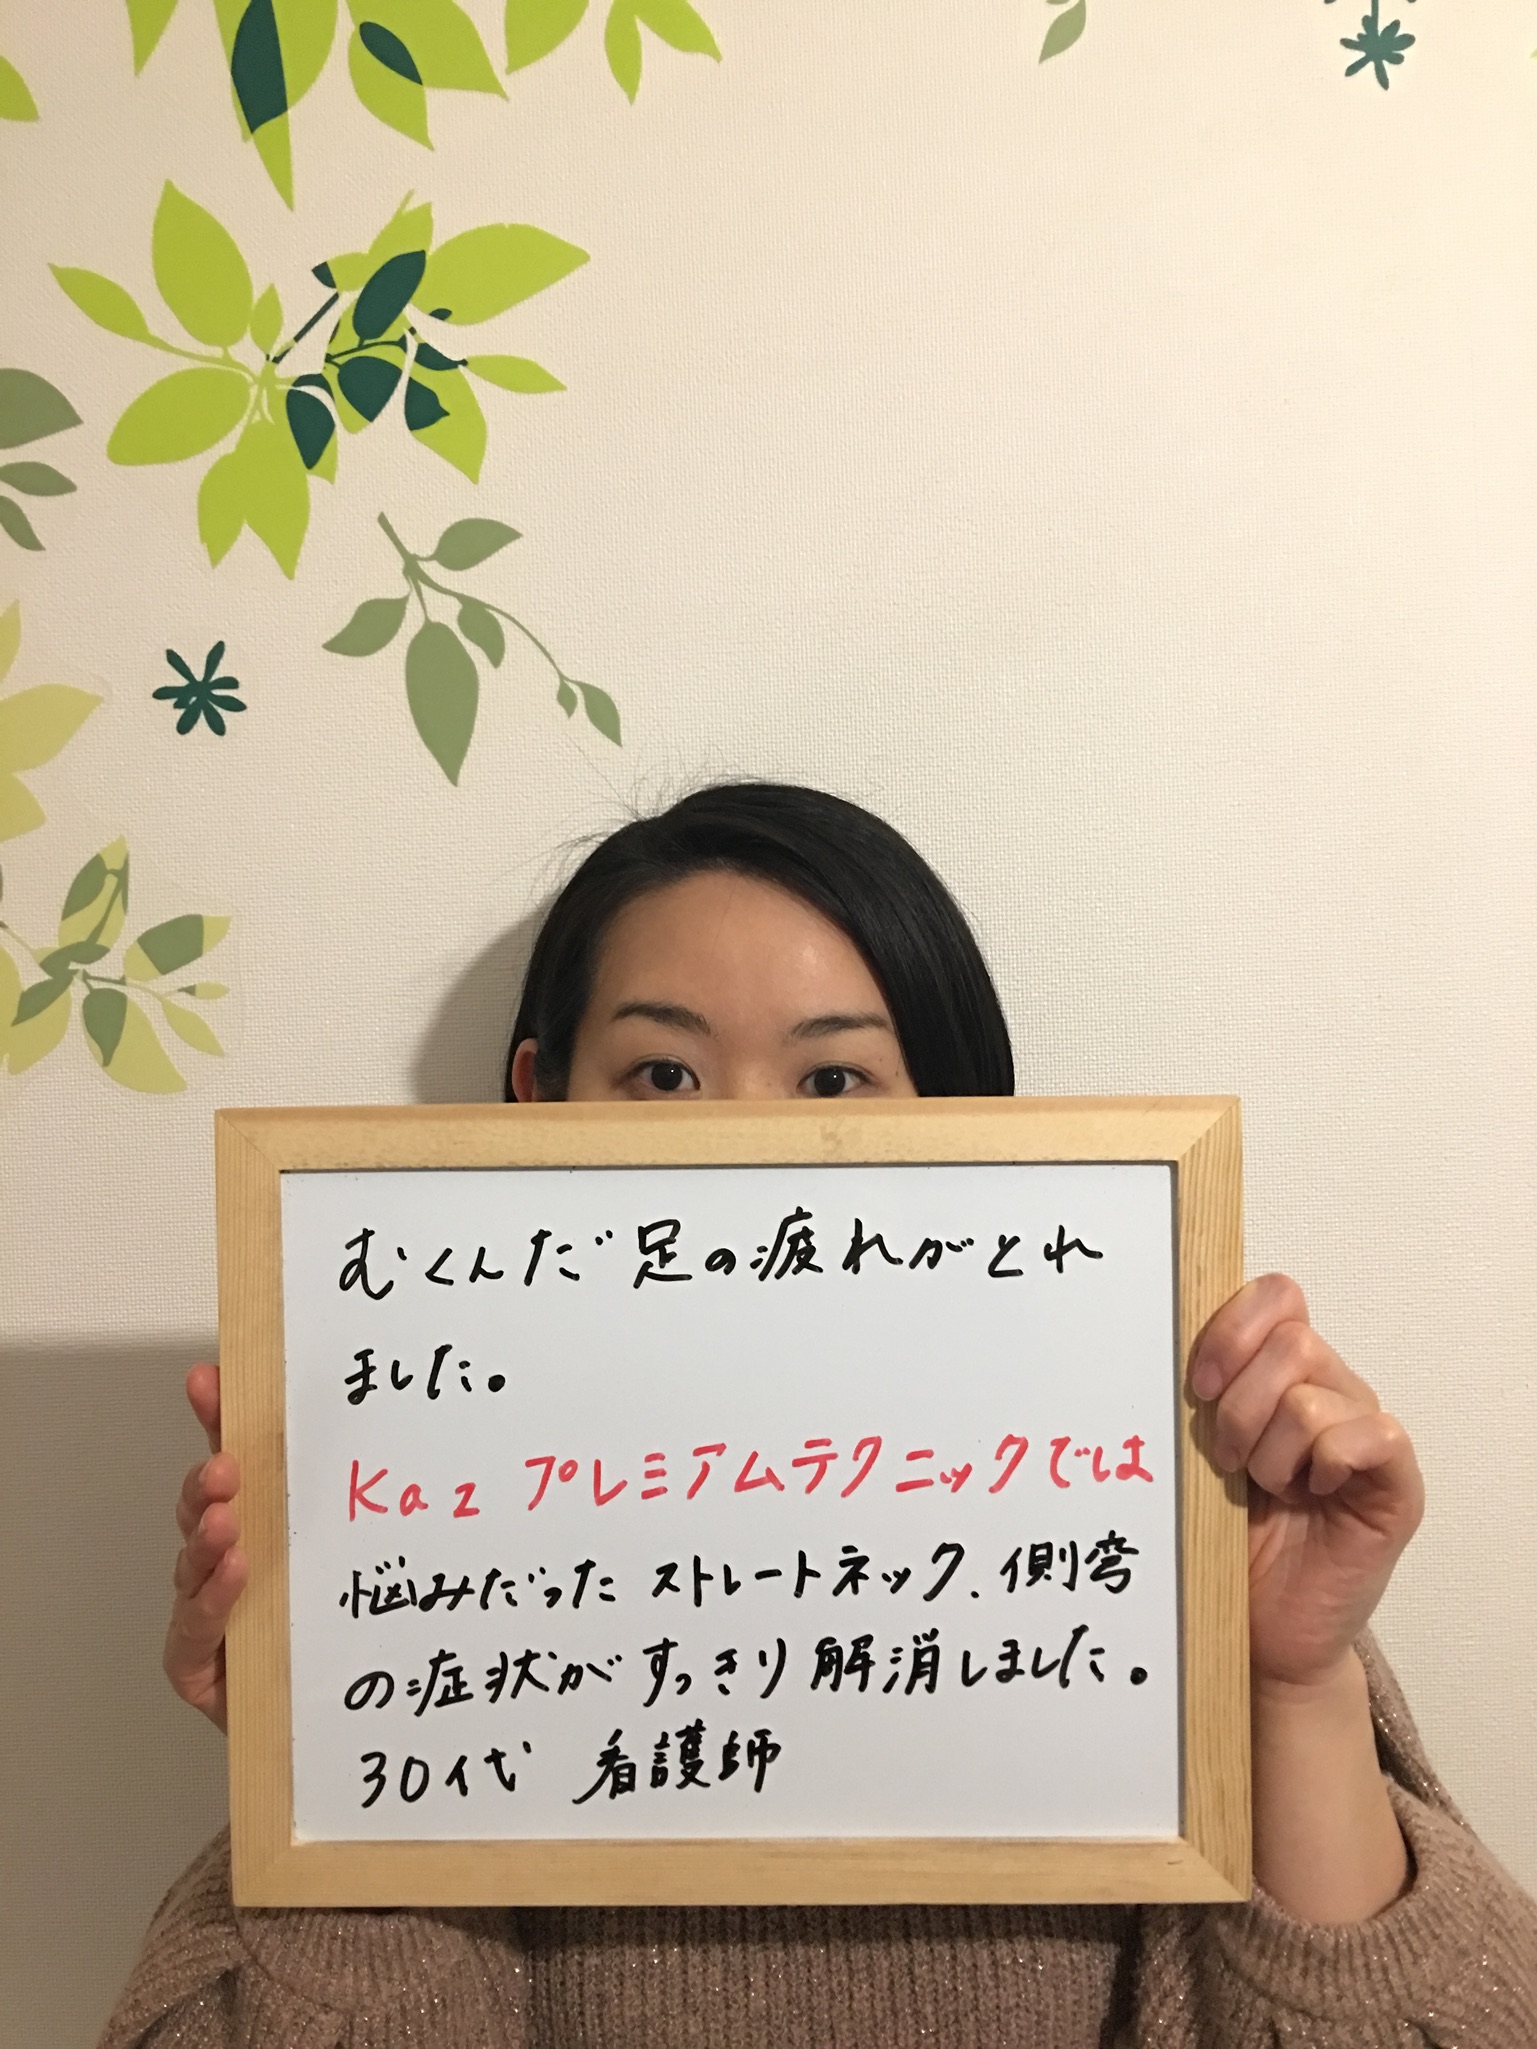 むくんだ足の疲れがとれ
ました。
Kaz プレミアムテクニックでは
悩みだった ストレートネック、側弯
の症状がすっきり解消しました。
30代 看護師